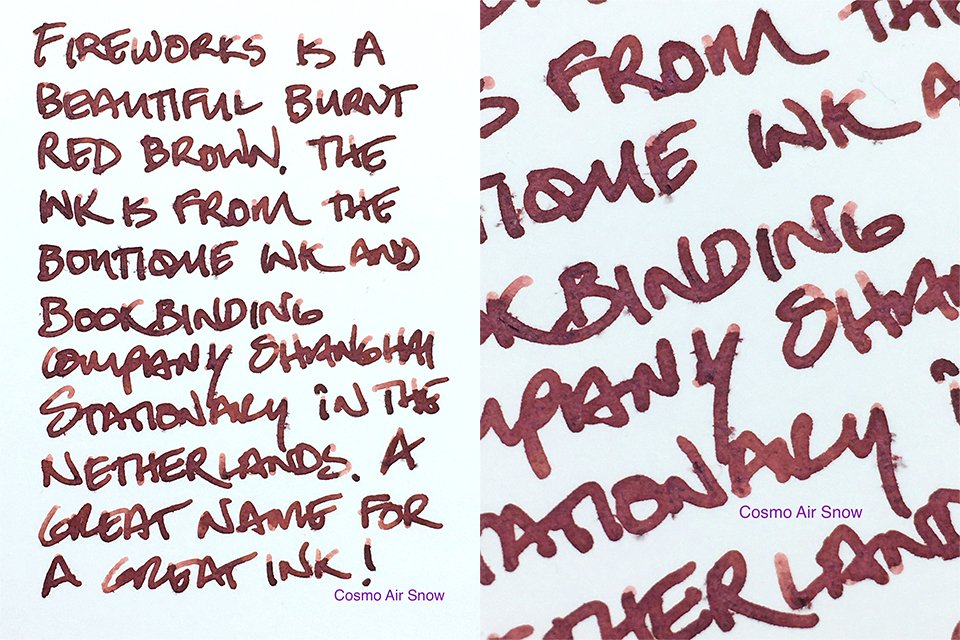 FIREWORKS IS A
BEAUTIFUL BURNT
RED BROWN. THE
INK IS FROM THE
BOUTIQUE INK AND
BOOKBINDING
COMPANY SHANGHAI
STATIONARY IN THE
NETHERLANDS. A
GREAT NAME FOR
A GREAT INK!
Cosmo Air Snow
S FROM THE
TIQUE INK A
OKBINDING
MPANY SHANG
TATIONARY i
THERLAND
Cosmo Air Snow